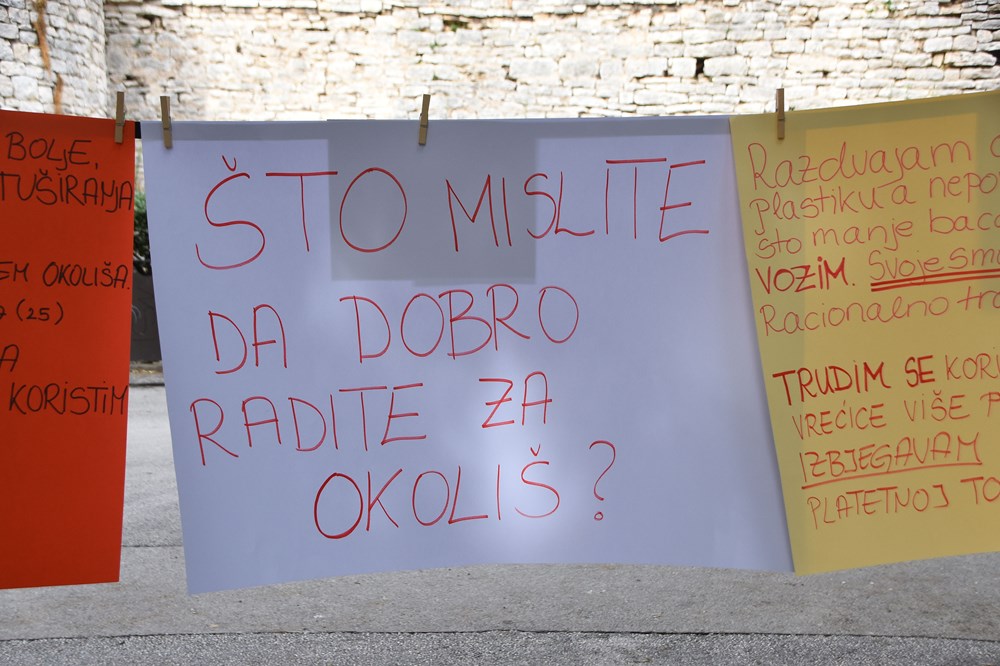 BOLJE,
TUŠIRANJA
OKOLIŠA.
(25)
KORISTIM
ŠTO MISLITE
DA DOBRO
RADITE ZA
OKOLIŠ?
Razdvajam
plastiku a
što manje
VOZIM. Svoje
Racionalno
TRUDIM SE
VREĆICE VIŠE
IZBJEGAVAM
PLATETNOJ